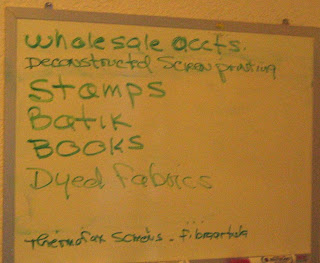 wholesale accts.
Deconstructed Screen printing
Stamps
Batik
BOOKS
Dyed Fabrics
Thermofax Screens - fibreartske